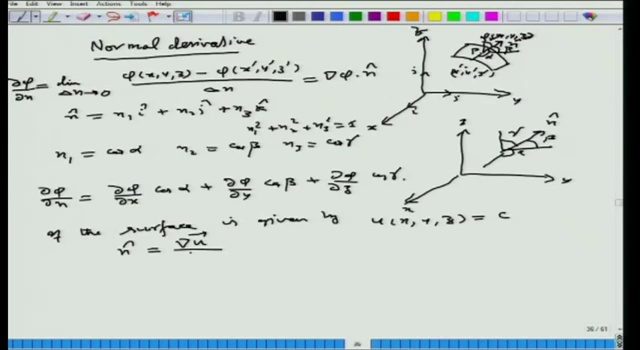 View Insert Actions Tools Help
Normal derivative
∂φ/∂n = lim Δn→0 (φ(x,y,z) − φ(x',y',z'))/Δn = ∇φ·n̂
n̂ = n₁ î + n₂ ĵ + n₃ k̂
n₁² + n₂² + n₃² = 1
n₁ = cos α n₂ = cos β n₃ = cos γ
∂φ/∂n = ∂φ/∂x cos α + ∂φ/∂y cos β + ∂φ/∂z cos γ.
of the surface is given by u(x,y,z) = c
n̂ = ∇u
z
y
x
(x',y',z')
z
n̂
γ
β
α
y
x
36 / 61
36